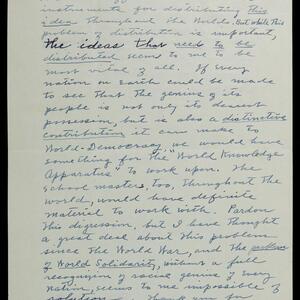 instruments for distributing this
idea throughout the Worlds. But while this
problem of distribution is important,
the ideas that need to be
distributed seems to me to be
most vital of all. If every
nation on Earth could be made
to see that the genius of its
people is not only its dearest
possession, but is also a distinctive
contribution it can make to
World-Democracy, we would have
something for the "World Knowledge
Apparatus" to work upon. The
school masters, too, throughout the
world, would have definite
material to work with. Pardon
this digression, but I have thought
a great deal about this problem
since the World War, and the problem
of World Solidarity, without a full
recognition of racial genius of every
nation, seems to me impossible of
solution. Thank you for